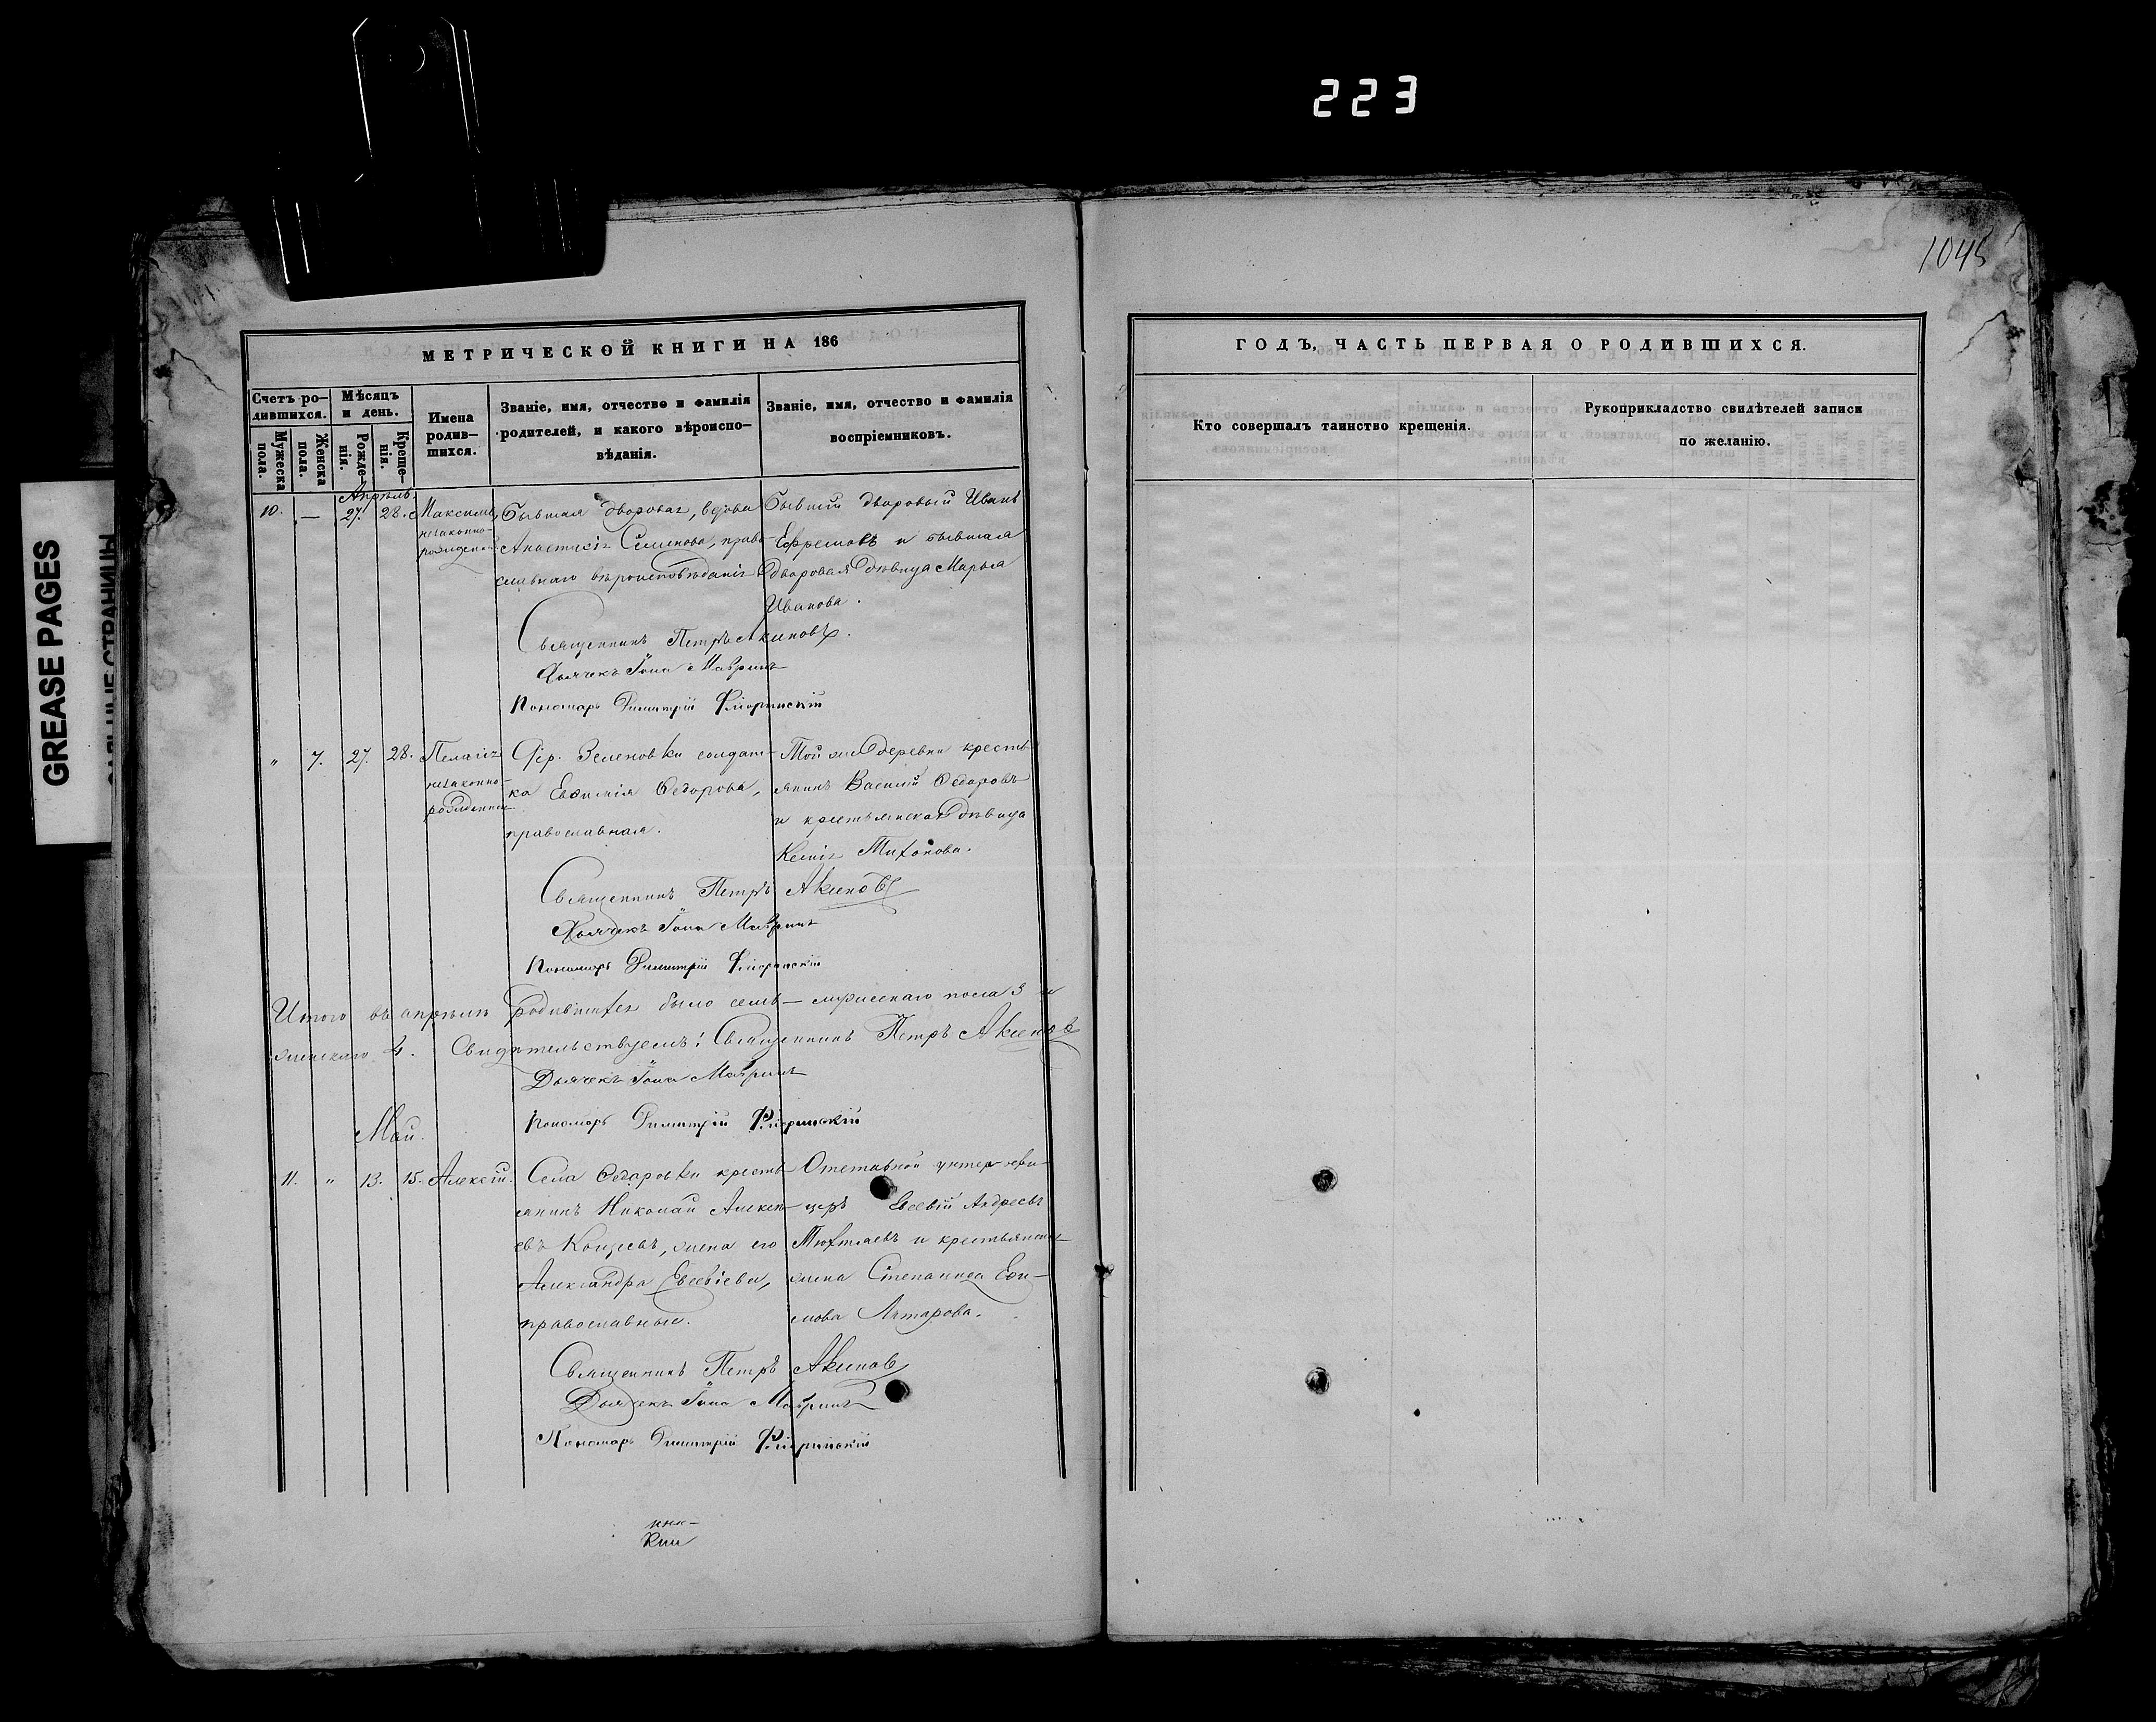 223
1045
GREASE PAGES
МЕТРИЧЕСКОЙ КНИГИ НА 186
Счетъ родившихся.
Мѣсяцъ и день.
Мужеска пола.
Женска пола.
Рожденія.
Крещенія.
Имена родившихся.
Званіе, имя, отчество и фамилія
родителей, и какого вѣроиспо-
вѣданія.
Званіе, имя, отчество и фамилія
воспріемниковъ.
Апрѣль.
10. — 27. 28. Максимъ, Бывшая дворовая, вдова Бывшій дворовый Иванъ
незаконно-
рожденный Анастасія Семенова, право- Ефремовъ и бывшая
славнаго вѣроисповѣданія дворовая дѣвица Марья
Иванова.
Священникъ Петръ Аксиновъ.
Дьячекъ Іона Мавринъ
Пономарь Димитрій Флоринскій
" 7. 27. 28. Пелагія Дер. Зеленовки солдат- Той же деревни кресть-
незаконно-
рожденная ка Евфимія Федорова, янинъ Василій Федоровъ
православная. и крестьянская дѣвица
Ксенія Тихонова.
Священникъ Петръ Аксиновъ
Дьячекъ Іона Мавринъ
Пономарь Димитрій Флоринскій
Итого въ апрѣлѣ родившихся было семь — мужескаго пола 3 и
женскаго 4. Свидѣтельствуемъ: Священникъ Петръ Аксенов
Дьячекъ Іона Мавринъ
Пономарь Димитрій Флоринскій
Май.
11. " 13. 15. Алексій. Села Федоровки кресть- Отставной унтер-офи-
янинъ Николай Алексѣ- церъ Евсевій Андреевъ
евъ жена его и крестьянская
Александра Евсевіева, жена Степанида Ефи-
православные. мова
Священникъ Петръ Аксинов
Дьячекъ Іона Мавринъ
Пономарь Димитрій Флоринскій
ГОДЪ, ЧАСТЬ ПЕРВАЯ О РОДИВШИХСЯ.
Кто совершалъ таинство крещенія.
Рукоприкладство свидѣтелей записи
по желанію.